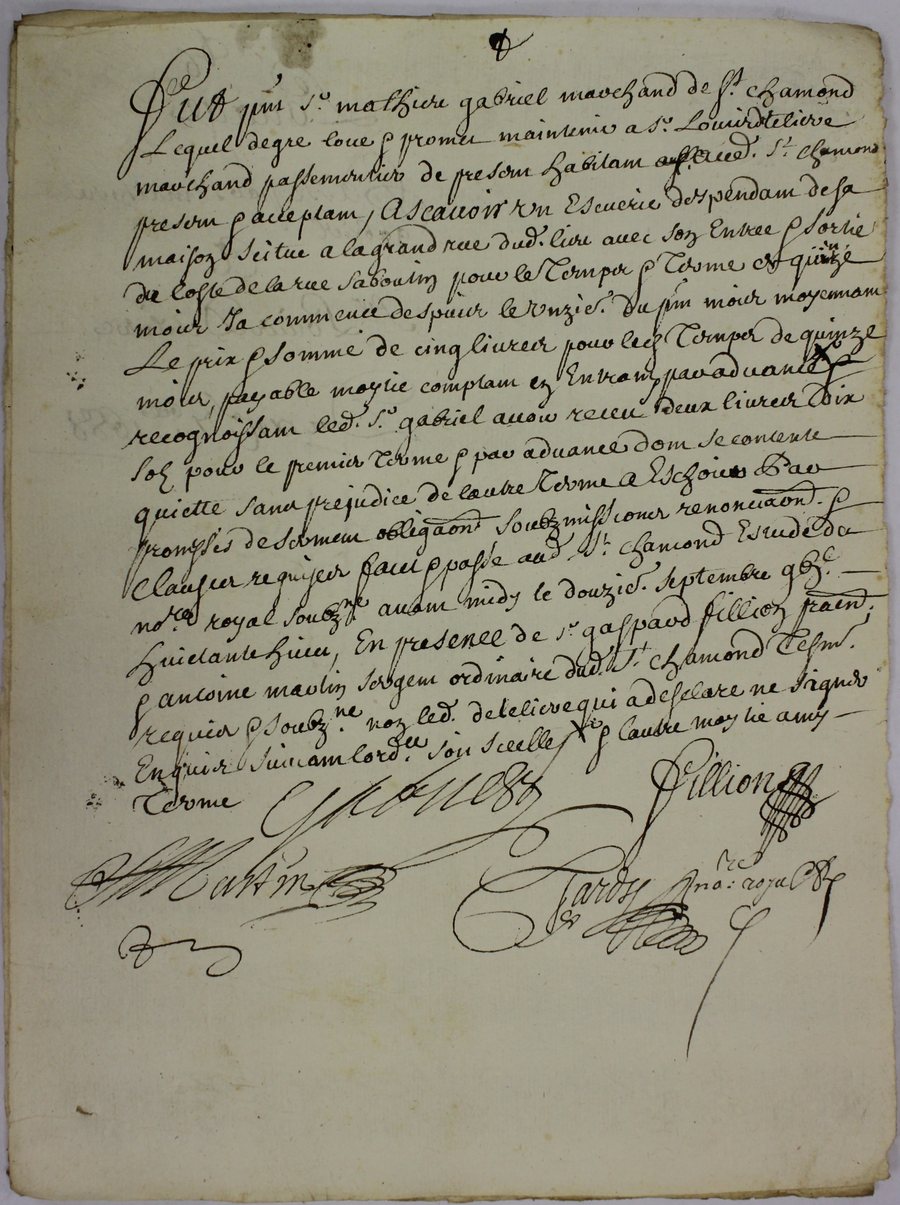 Fut p̃nt Sr. mathieu gabriel marchand de St. chamond
Lequel de gre loue & promet maintenir a Sr. Louis detelieve
marchand passementier de present habitant aud. St. chamond
present & acceptant, Ascavoir Un Escuerie despendant de sa
maison Scitue a la grand rue dud. lieu avec son Entree & sortie
du coste de la rue saboutin pour le Temps & Terme de quinze
mois Ja commence despuis le unzie. du p̃nt mois moyennant
Le prix & somme de cinq livres pour led. Temps de quinze
mois, payable moytie comptant en Entrant par advance
recognoissant led. Sr. gabriel avoir receu deux livres dix
solz pour le premier Terme & par advance dont se contente
quiette sans prejudice de lautre Terme a Eschoir Par
promesses de serment obligaons soubzmissions renonciaons. &
Clauses requises fait & passe aud. St. chamond Estude du
nore. royal soubzne avant midy le douzie. septembre gbic
huictante huict, En presence de Sr. gaspard fillion praticn.
& antoine martin sergent ordinaire dud. St. chamond Tesm.
requis & soubz.ne non led. detelieve qui a desclare ne signer
Enquis suivant lord.ce soit scelle & lautre moytie a my
Terme
Gabriel
Fillion
Martin
Tardy no.re royal